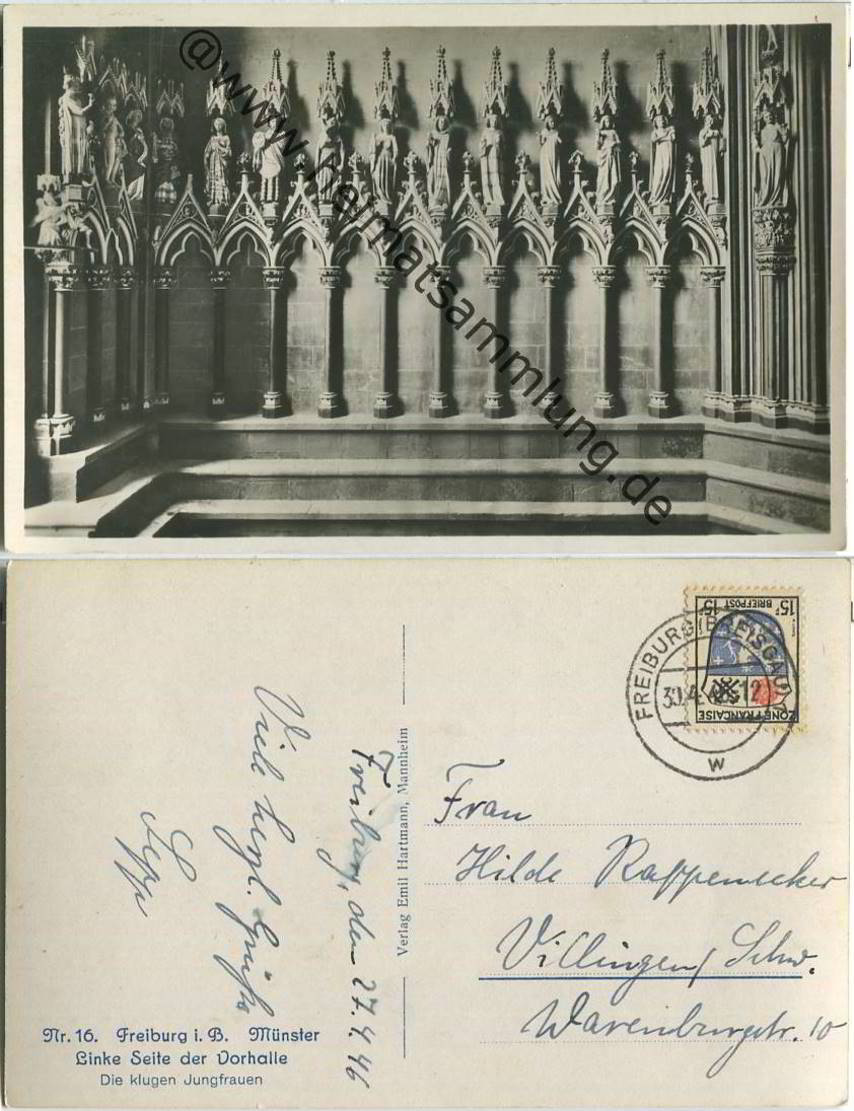 @www.heimatsammlung.de
15 F BRIEFPOST 15 F
ZONE FRANÇAISE
FREIBURG (BREISGAU)
30.4.46-12
w
Freiburg, den 27.4.46
Viele herzl. Grüße
Sepp
Verlag Emil Hartmann, Mannheim
Frau
Hilde Rappenecker
Villingen/Schw.
Warenburgstr. 10
Nr. 16. Freiburg i. B. Münster
Linke Seite der Vorhalle
Die klugen Jungfrauen